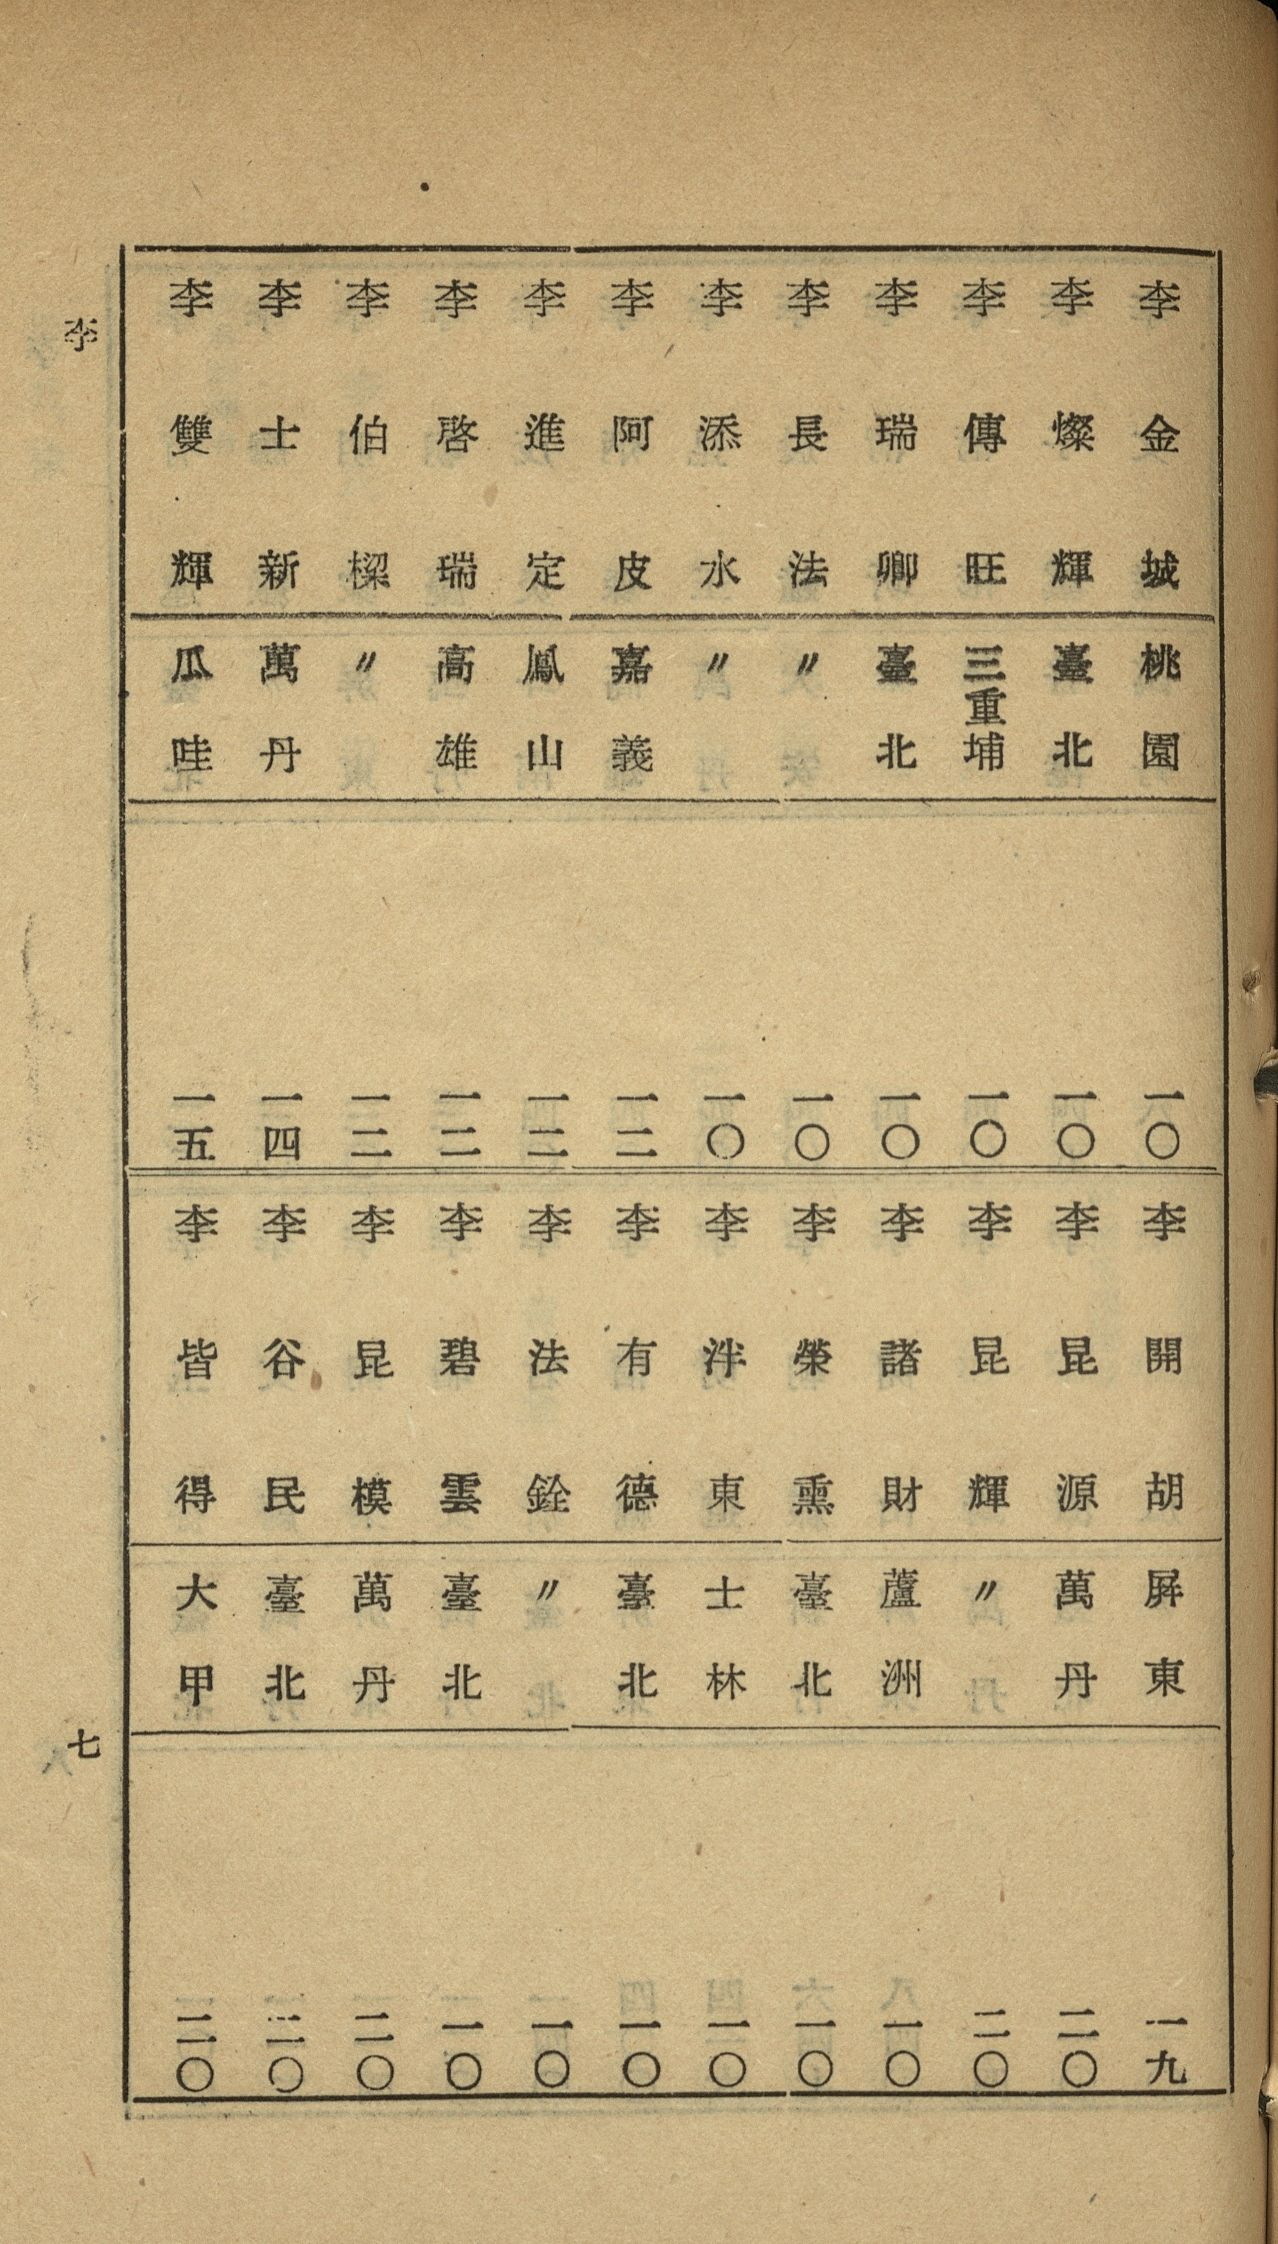 李金城 桃園 一〇
李燦輝 臺北 一〇
李傳旺 三重埔 一〇
李瑞卿 臺北 一〇
李長法 〃 一〇
李添水 〃 一〇
李阿皮 嘉義 一二
李進定 鳳山 一二
李啓瑞 高雄 一二
李伯樑 〃 一二
李士新 萬丹 一四
李雙輝 瓜哇 一五
李開胡 屏東 一九
李昆源 萬丹 二〇
李昆輝 〃 二〇
李諸財 蘆洲 一〇
李榮熏 臺北 一〇
李泮東 士林 一〇
李有德 臺北 一〇
李法銓 〃 一〇
李碧雲 臺北 一〇
李昆模 萬丹 二〇
李谷民 臺北 二〇
李皆得 大甲 二〇
李
七